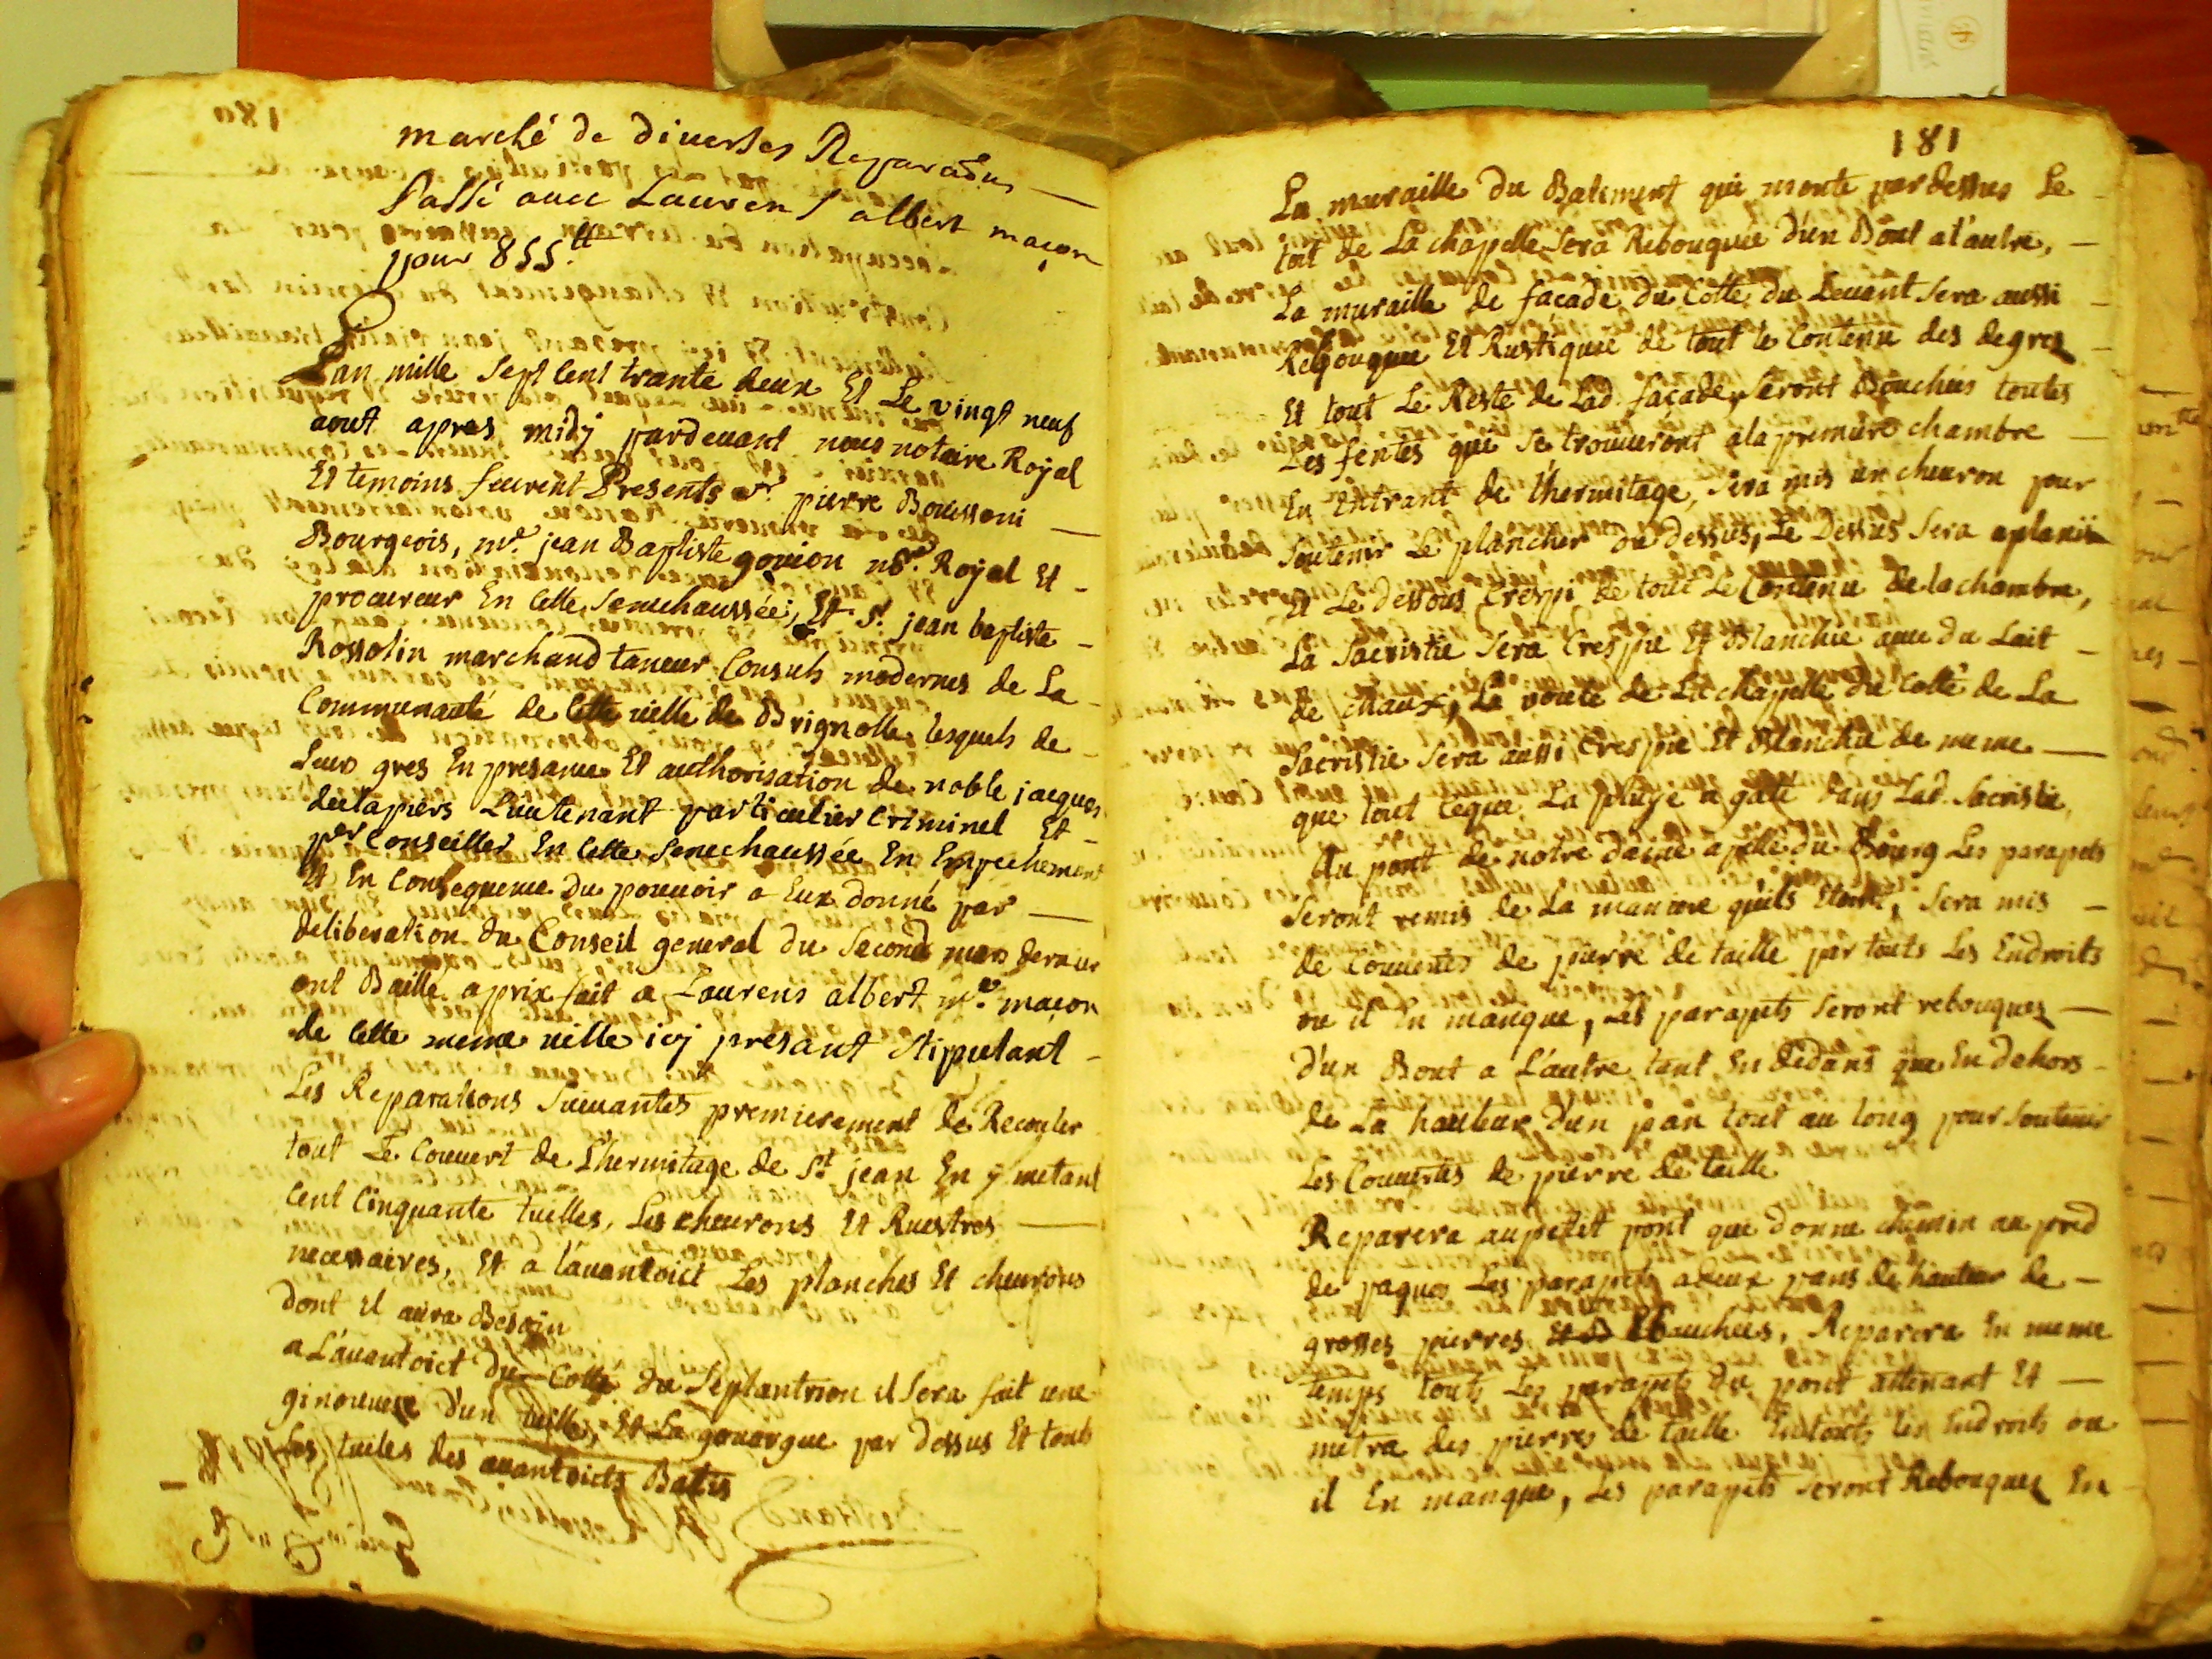 marché de diverses Reparaons
Passé avec Laurens albert maçon
pour 855.tt
L'an mille sept cent trante deux Et Le vingt neuf
aout apres midy pardevant nous notaire Royal
Et temoins feurent Presents Sr. pierre Bouissoni
Bourgeois, me. jean Baptiste goujon nre. Royal Et
procureur En cette Senechaussée, Et Sr. jean baptiste
Rossolin marchand taneur Consuls modernes de La
Communauté de cette ville de Brignolle lesquels de
Leurs gres En presance Et authorisation de noble jacques
deslapiers Lieutenant particulier Criminel Et
per Conseiller En cette Senechaussée En Empechement
Et En Consequence du pouvoir a Eux donné par
deliberation du Conseil general du Second mars dernier
ont Baille a prix fait a Laurens albert me. maçon
de cette meme ville icy presant stipulant
Les Reparations Suivantes premierement de Recouler
tout Le Couvert de L'hermitage de St. jean En y metant
cent Cinquante tuilles, Les chevrons Et Ruestres
necessaires, Et a l'avantoict Les planches Et chevrons
dont il aura Besoin
a L'avantoict du Cotte du Septantrion il Sera fait une
ginouvese d'un tuille, Et La gouargue par dessus Et touts
Les tuiles des avantoicts Batis
181
La muraille du Batiment qui monte pardessus Le
toit de La chapelle Sera Rebouquée d'un Bout a l'autre,
La muraille de façade du Cotte du Levant Sera aussi
Rebouquée Et Rustiquée de tout le Contenu des degres
Et tout Le Reste de Lad. façade, Seront Bouchées toutes
Les fentes qui Se trouveront a la premiere chambre
En Entrant de l'hermitage, Sera mis un chevron pour
Soutenir Le plancher du dessus, Le Dessus Sera aplani
Et Le dessous Crespi de tout Le Contenu de la chambre,
La Sacristie Sera Crespie Et Blanchie avec du Lait
de chaux, La voute de La chapelle du Cotte de La
Sacristie Sera aussi Crespie Et Blanchie de meme
que tout ceque La pluye a gaté dans Lad. Sacristie,
Au pont de notre dame apellé du Bourg Les parapets
Seront remis de La maniere qu'ils Etoint, Sera mis
de Couvertes de pierre de taille par touts Les Endroits
ou il En manque, Les parapets Seront rebouques
D'un Bout a L'autre tant En dedans que En dehors
de La hauteur d'un pan tout au long pour Soutenir
Les Couvertes de pierre de taille
Reparera au petit pont que donne chemin au pred
de paques Les parapets a deux pans de hauteur de
grosses pierres Ebauchées, Reparera En meme
temps touts Les parapets du pont attenant Et
metra des pierres de taille En touts les Endroits ou
il En manque, Les parapets Seront Rebouques En